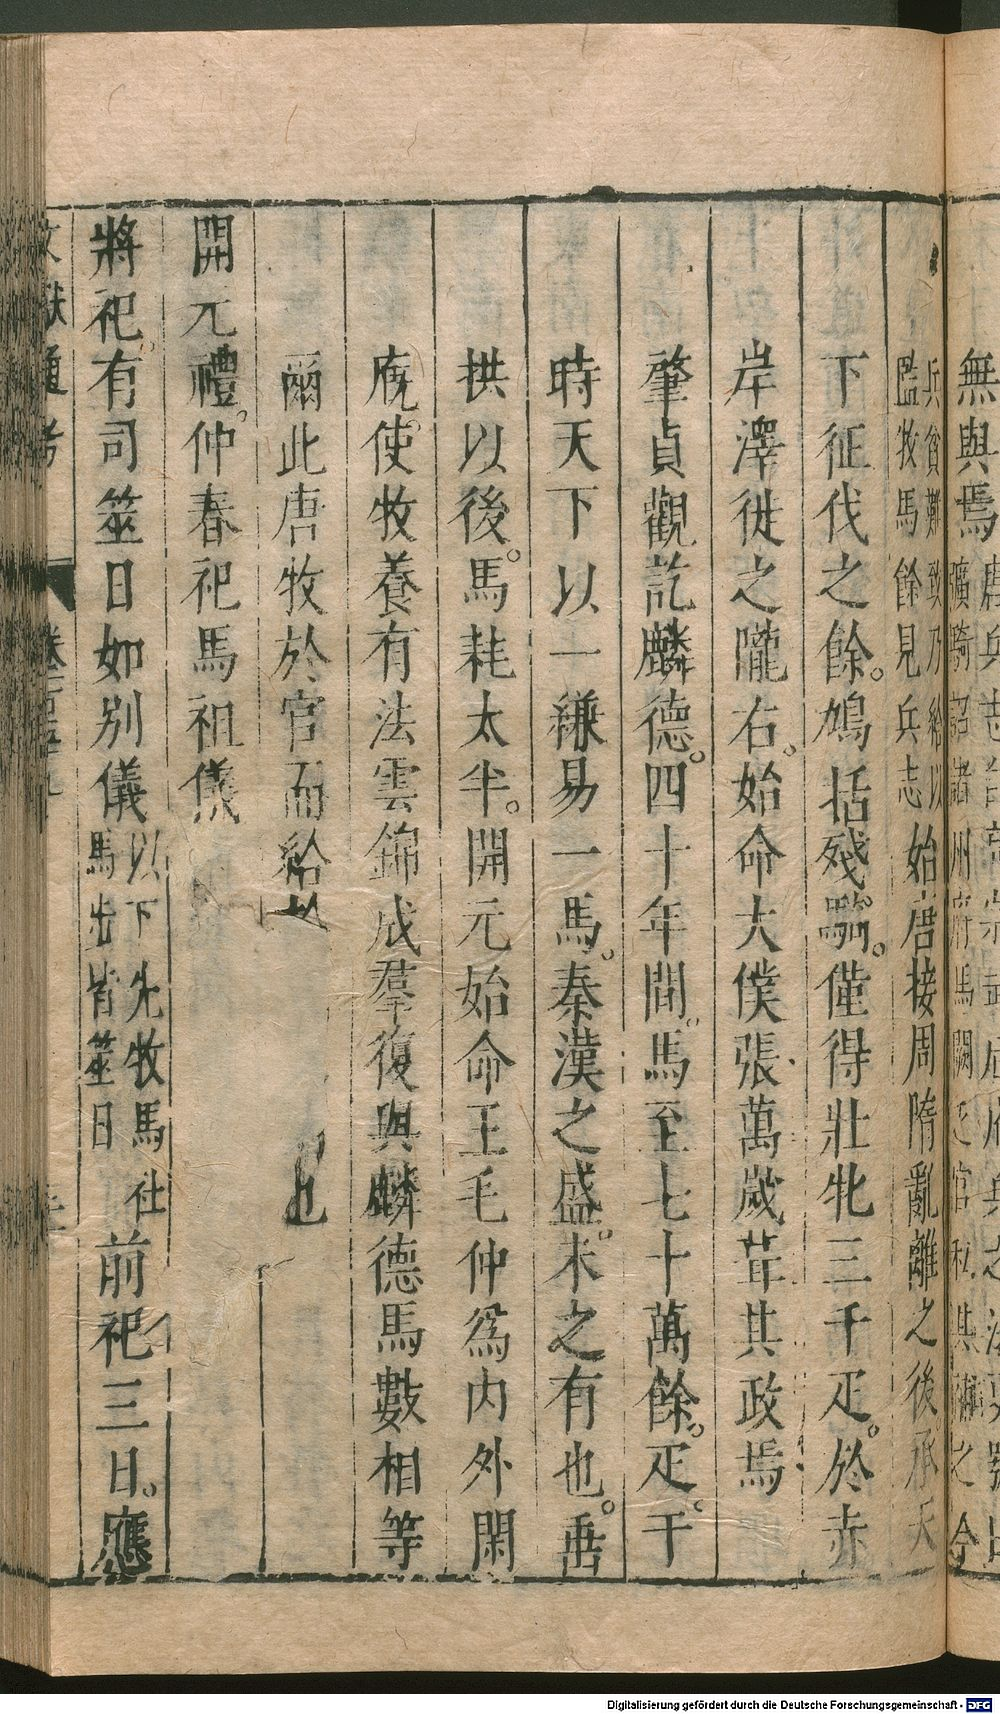 無與焉
兵貧難致乃給以
監牧馬餘見兵志
始唐接周隋亂離之後承天
下征伐之餘。鳩括殘騎。僅得壯牝三千疋。於赤
岸澤徙之隴右。始命大僕張萬歲葺其政焉
肇貞觀訖麟德。四十年間。馬至七十萬餘。疋于
時天下以一縑易一馬。秦漢之盛。未之有也。垂
拱以後。馬耗太半。開元始命王毛仲為內外閑
廐使。牧養有法雲錦成羣復與麟德馬數相等
爾此唐牧於官而給
開元禮。仲春祀馬祖儀
將祀有司筮日如別儀
以下先牧馬社
馬步皆筮日
前祀三日。應
文獻通考
Digitalisierung gefördert durch die Deutsche Forschungsgemeinschaft - DFG